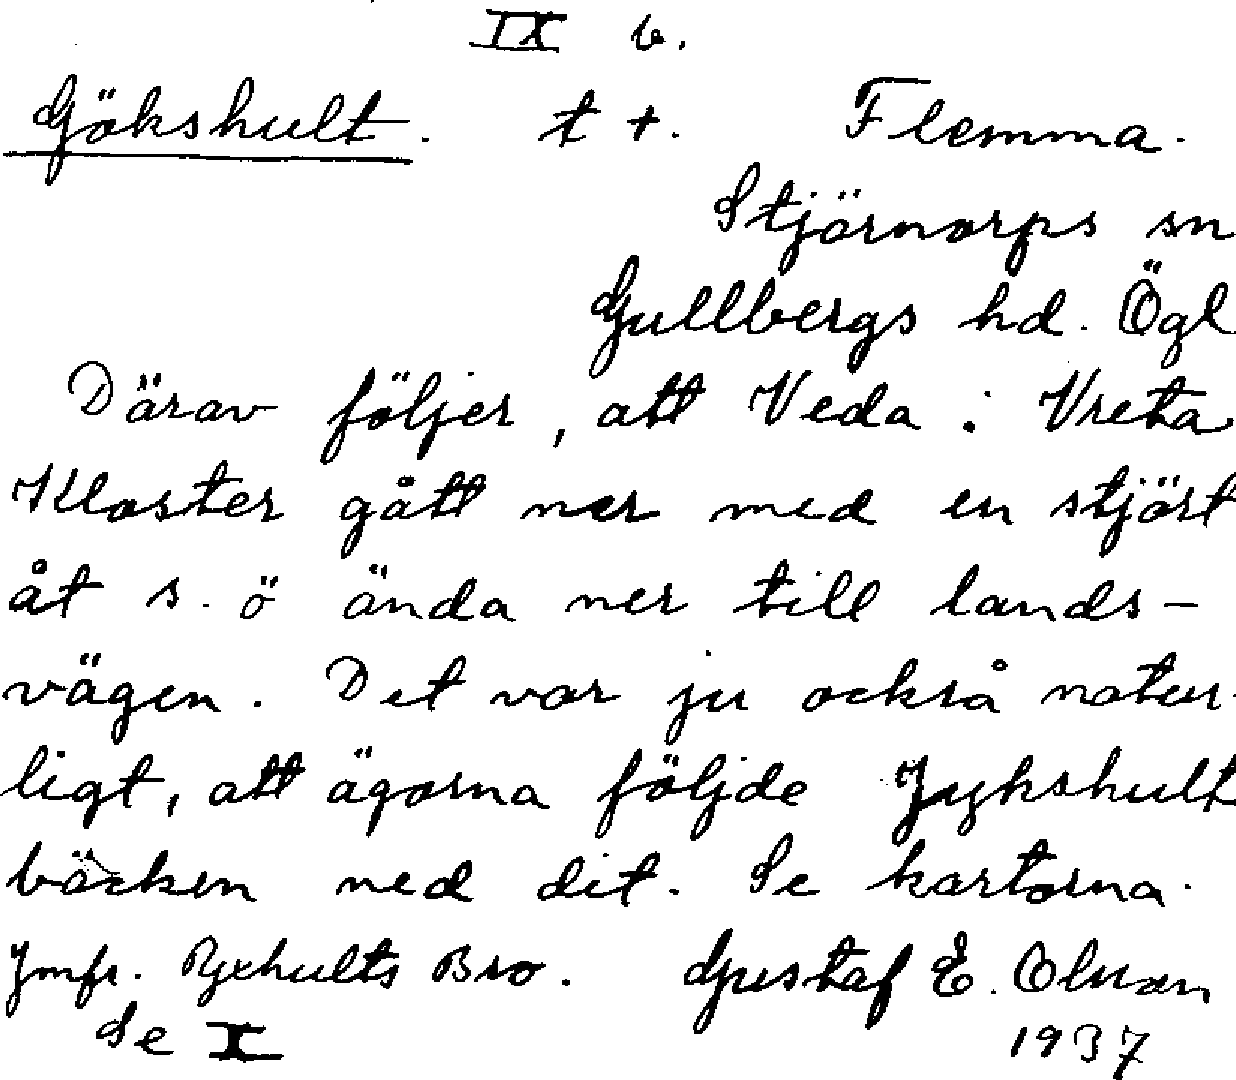 IX b.
Gökshult. t +. Flemma.
Stjärnorps sn
Gullbergs hd. Ögl
Därav följer, att Veda i Vreta
Kloster gått ner med en stjört
åt s. ö ända ner till lands-
vägen. Det var ju också natur-
ligt, att ägorna följde Jykshult
bäcken ned dit. Se kartorna.
Jmfr. Ryxhults Bro. Gustaf E. Olsson
Se X 1937